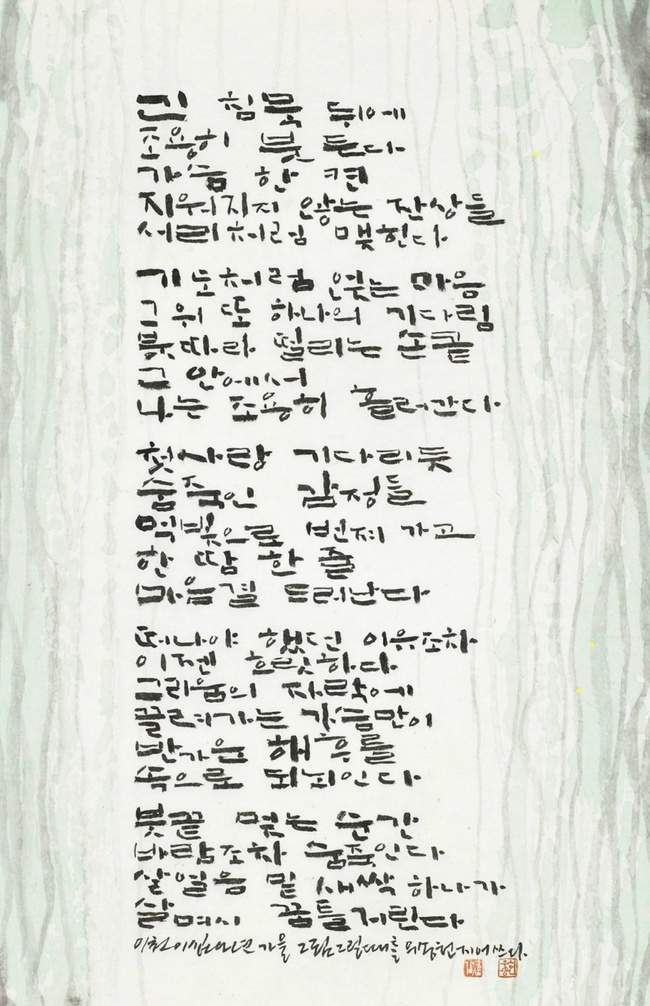 긴 침묵 뒤에
조용히 붓 든다
가슴 한 켠
지워지지 않는 잔상들
서리처럼 맺힌다
기도처럼 얹는 마음
그 위 또 하나의 기다림
붓 따라 떨리는 손끝
그 안에서
나는 조용히 흘러간다
첫사랑 기다리듯
숨죽인 감정들
먹빛으로 번져 가고
한 땀 한 줄
마음결 드러난다
떠나야 했던 이유조차
이젠 흐릿하다
그리움의 자락에
끌려가는 가슴만이
반가운 해후를
속으로 되뇌인다
붓끝 멎는 순간
바람조차 숨죽인다
살얼음 밑 새싹 하나가
살며시 꿈틀거린다
이천이십오년 가을 그림그릴때를 지어쓰다.